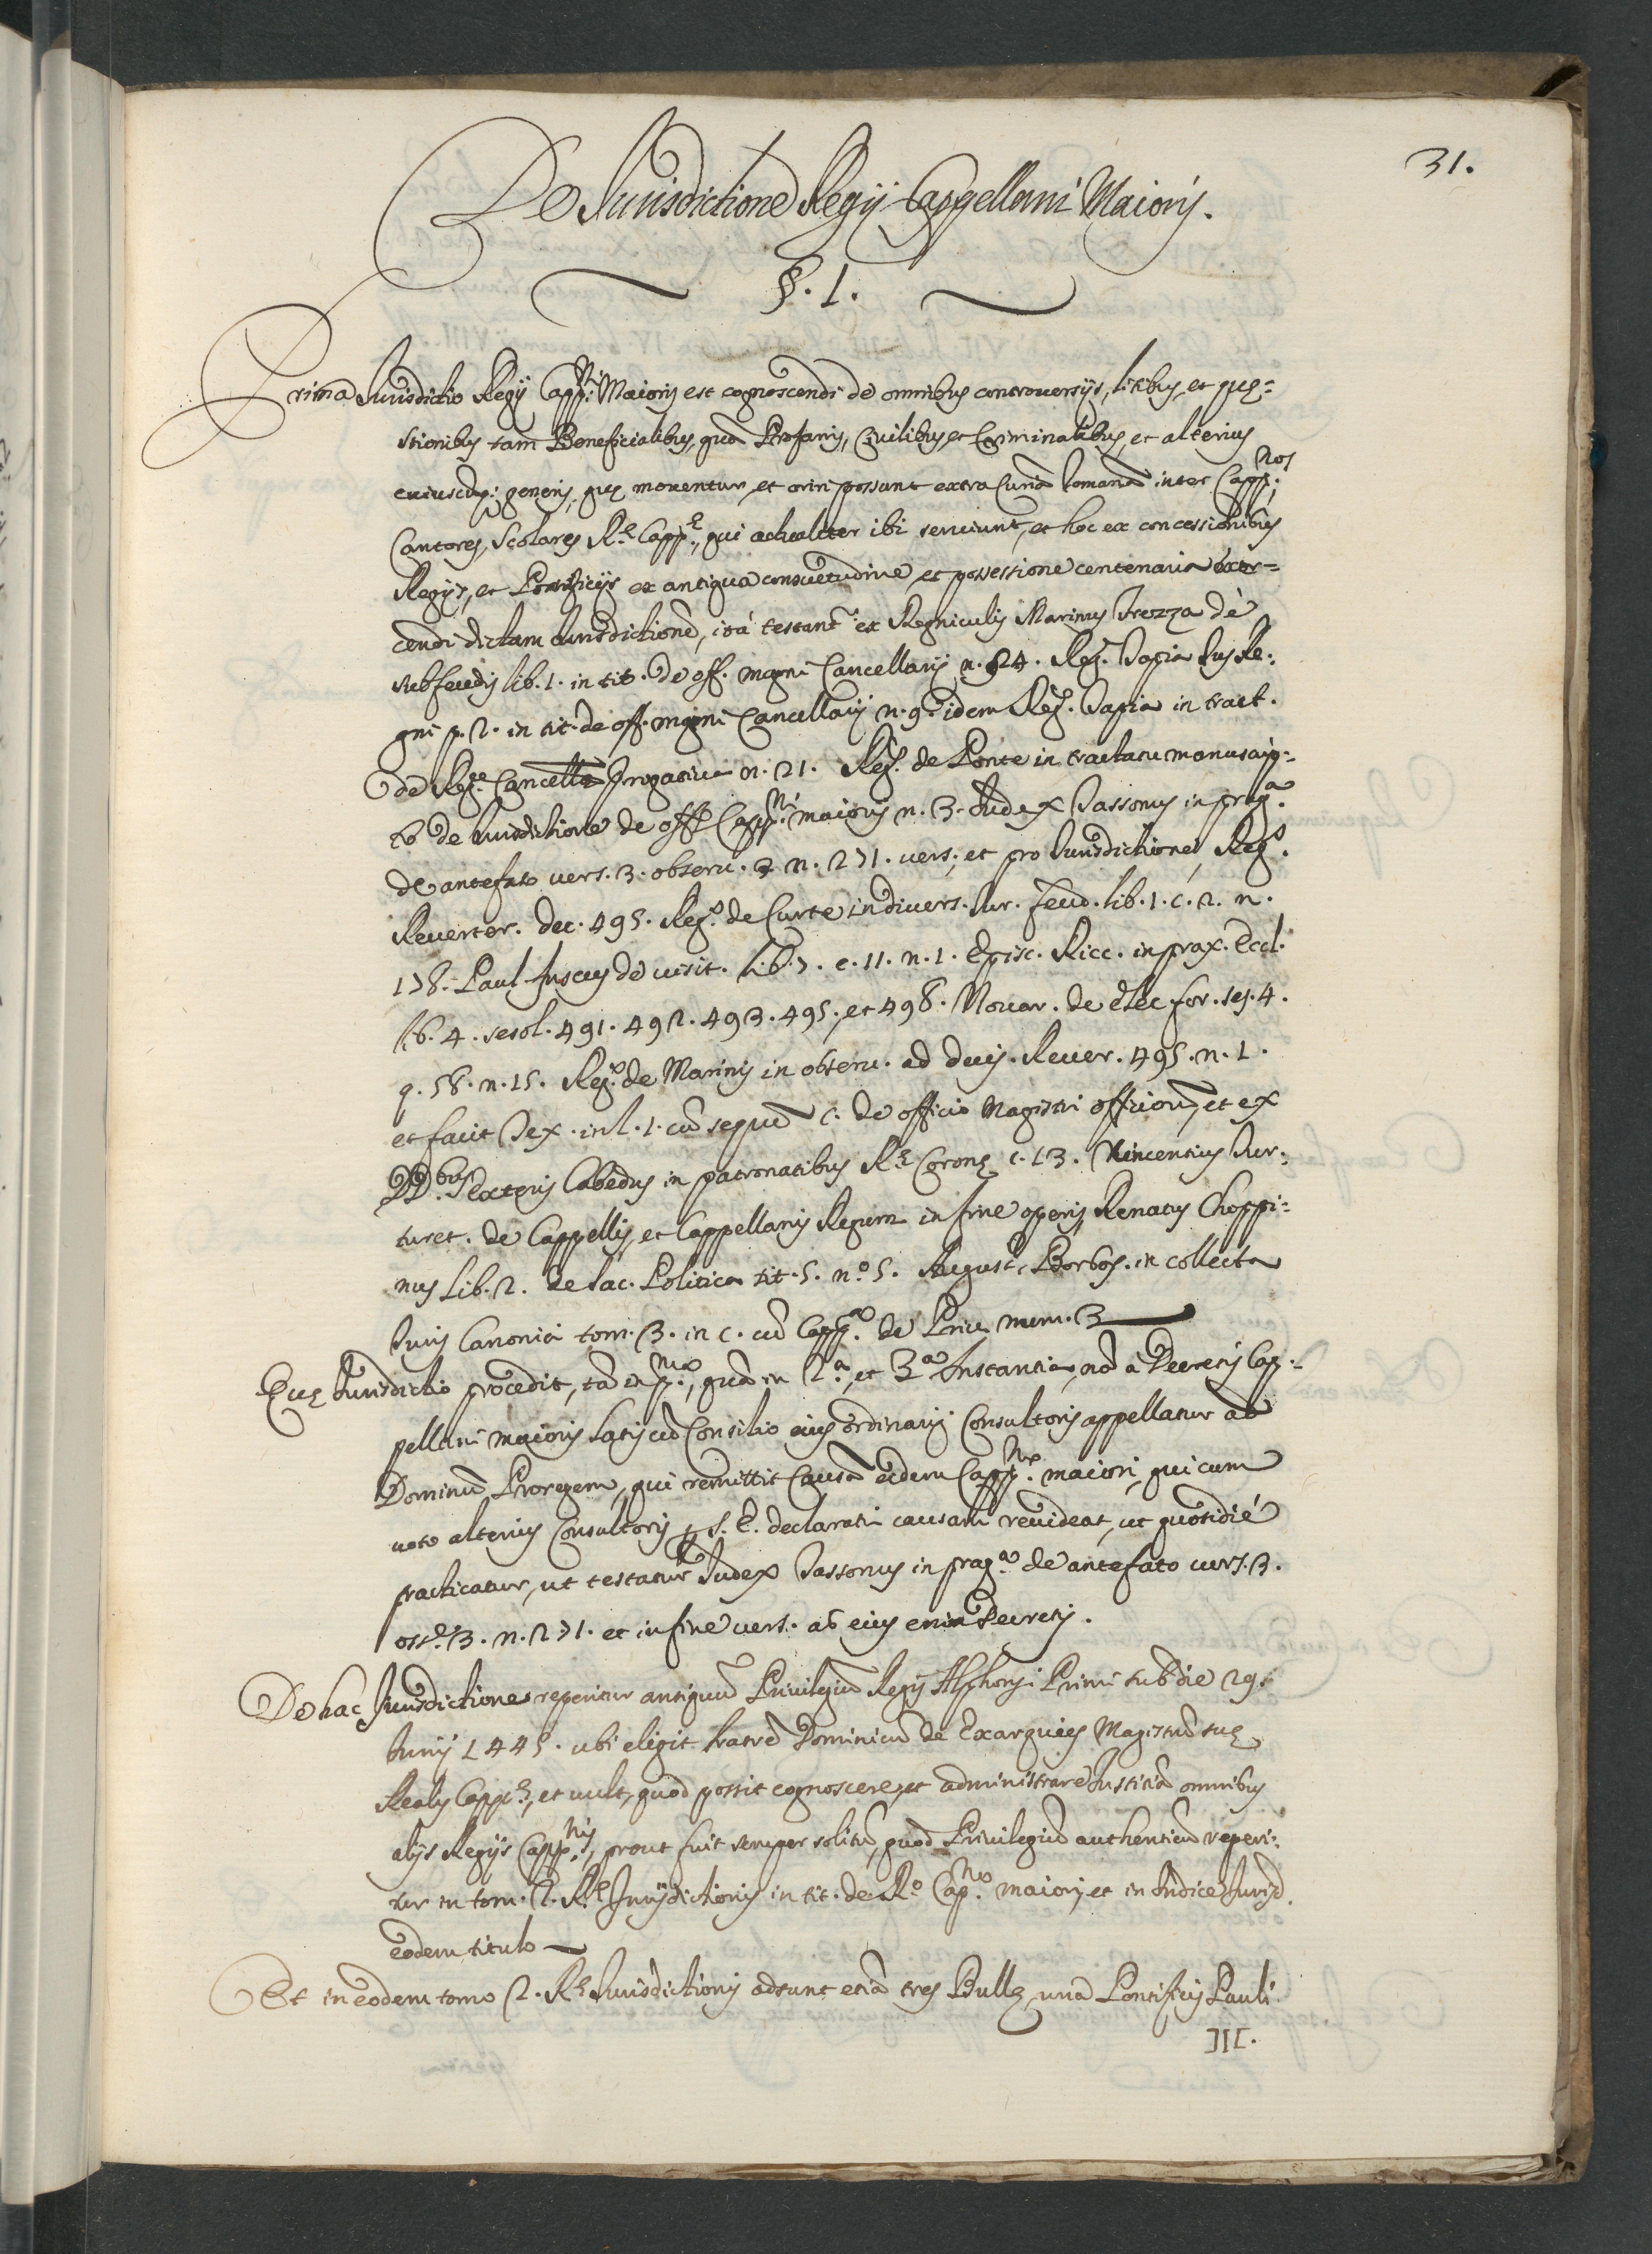 31.
De Iurisdictione Regij Cappellani Maioris.
§. 1.
Prima Iurisdictio Regij Capp.ni Maioris est cognoscendi de omnibus controuersijs, litibus, et quę=
stionibus tam Beneficialibus, quã Profanis, Ciuilibus, et Criminalibus, et alterius
cuiuscumq; generis, quę mouentur, et oriri possunt extra Curiã Romanã inter Capp.nos,
Cantores, Scolares R.ę Capp.ę, qui actualiter ibi seruiunt, et hoc ex concessionibus
Regijs, et Pontificijs ex antiqua consuetudine, et possessione centenaria exer=
cendi dictam Iurisdictionẽ, ità testant.r ex Regniculis Marinus Frezza dè
subfeudis lib. 1. in tit. de off. magni Cancellarij n. 24. Reg. Tapia Ius Re:
gni p. 2. in tit. de off. magni Cancellarij n. 9. idem Reg. Tapia in tract.
de Reg.ę Cancell.ę n. 21. Reg. de Ponte in tractatu manuscrip=
to de Iurisdictione de off.o Capp.ni maioris n. 3. Iudex Tassonus in prag.a
de antefato uers. 3. obseru. 3 n. 271. uers. et pro Iurisdictione, Reg.s
Reuerter. dec. 495. Reg.s de Curte in diuers. Iur. feud. lib. 1. c. 2. n.
178. Paul. Fuscus de uisit. lib. 7. c. 11. n. 1. Episc. Ricc. in prax. Eccl.
lib. 4. resol. 491. 492. 493. 495, et 498. Nouar. de elec. for. 4.
q. 58. n. 15. Reg.s de Marinis in obseru. ad decis. Reuer. 495. n. 1.
et facit Tex. in l. 1. cũ C. de officio Magistri officiorũ, et ex
DD.bus Exteris Cabedus in patronatibus R.ę Coronę c. 13. Vincentius Tur:
turet. de Cappellis, et Cappellanis Regum in fine operis, Renatus Choppi=
nus lib. 2. de Sac. Politica tit. 5. n.o 5. August. Barbos. in collecta
Iuris Canonici tom. 3. in c. cũ Capp.a de Priu. num. 3
Quę Iurisdictio procedit, tã in p.ma, quã in 2.a, et 3.a Instantia, nã à Decretis Cap=
pellani maioris latis cũ Consilio eius ordinarij Consultoris appellatur ad
Dominũ Proregem, qui remittit Causã eidem Capp.no maiori, qui cum
uoto alterius Consultoris S. E. declarati causam reuideat, ut quotidiè
practicatur, ut testatur Iudex Tassonus in prag.a de antefato uers. 3.
3. n. 271. et in fine uers. ab eius enim Decretis.
De hac Iurisdictione reperitur antiquũ Priuilegiũ Regis Alphonsi Primi sub die 29.
Iunij 1445. ubi eligit fratrẽ Dominicũ de Exarquies Magistrũ suę
Realis Cappel.ę, et uult, quod possit cognoscere, et administrare Iustitiã omnibus
alijs Regijs Capp.nis, prout fuit semper solitũ, quod Priuilegiũ authenticũ reperi:
tur in tom. 2. R.ę Iurisdictionis in tit. de R.o Cap.no maiori, et in Indice Iurisd.
eodem titulo
Et in eodem tomo 2. R.ę Iurisdictionis adsunt etiã tres Bullę una Pontificis Pauli
III.